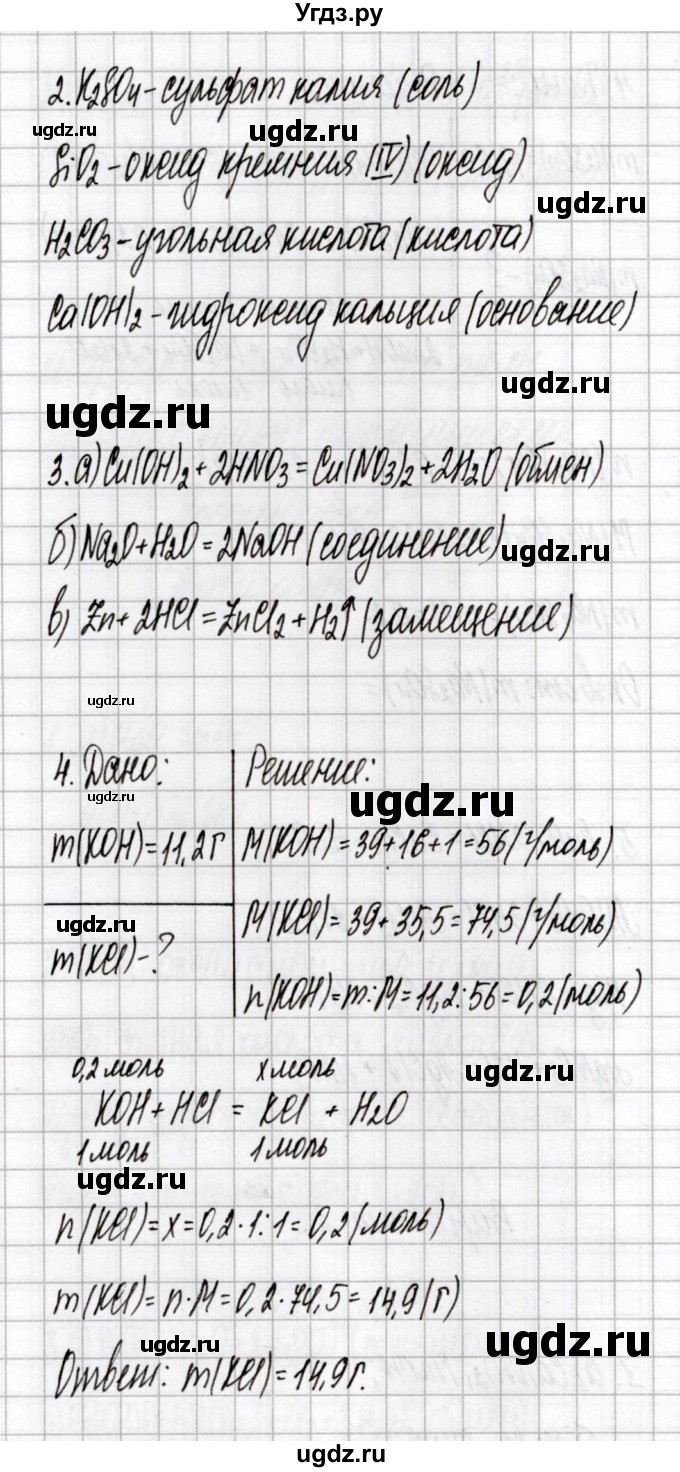 Угдз.ру
2. K2SO4 - сульфат калия (соль)
ugdz.ru
ugdz.ru
SiO2 - оксид кремния (IV) (оксид)
ugdz.ru
H2CO3 - угольная кислота (кислота)
ugdz.ru
Ca(OH)2 - гидроксид кальция (основание)
ugdz.ru
ugdz.ru
3. а) Cu(OH)2 + 2HNO3 = Cu(NO3)2 + 2H2O (обмен)
б) Na2O + H2O = 2NaOH (соединение)
ugdz.ru
в) Zn + 2HCl = ZnCl2 + H2↑ (замещение)
ugdz.ru
4. Дано:
ugdz.ru
m(KOH) = 11,2 г
ugdz.ru
m(KCl) - ?
Решение:
ugdz.ru
M(KOH) = 39 + 16 + 1 = 56 (г/моль)
M(KCl) = 39 + 35,5 = 74,5 (г/моль)
n(KOH) = m : M = 11,2 : 56 = 0,2 (моль)
0,2 моль x моль
ugdz.ru
KOH + HCl = KCl + H2O
1 моль 1 моль
ugdz.ru
n(KCl) = x = 0,2 · 1 : 1 = 0,2 (моль)
m(KCl) = n · M = 0,2 · 74,5 = 14,9 (г)
ugdz.ru
ugdz.ru
Ответ: m(KCl) = 14,9 г.
ugdz.ru